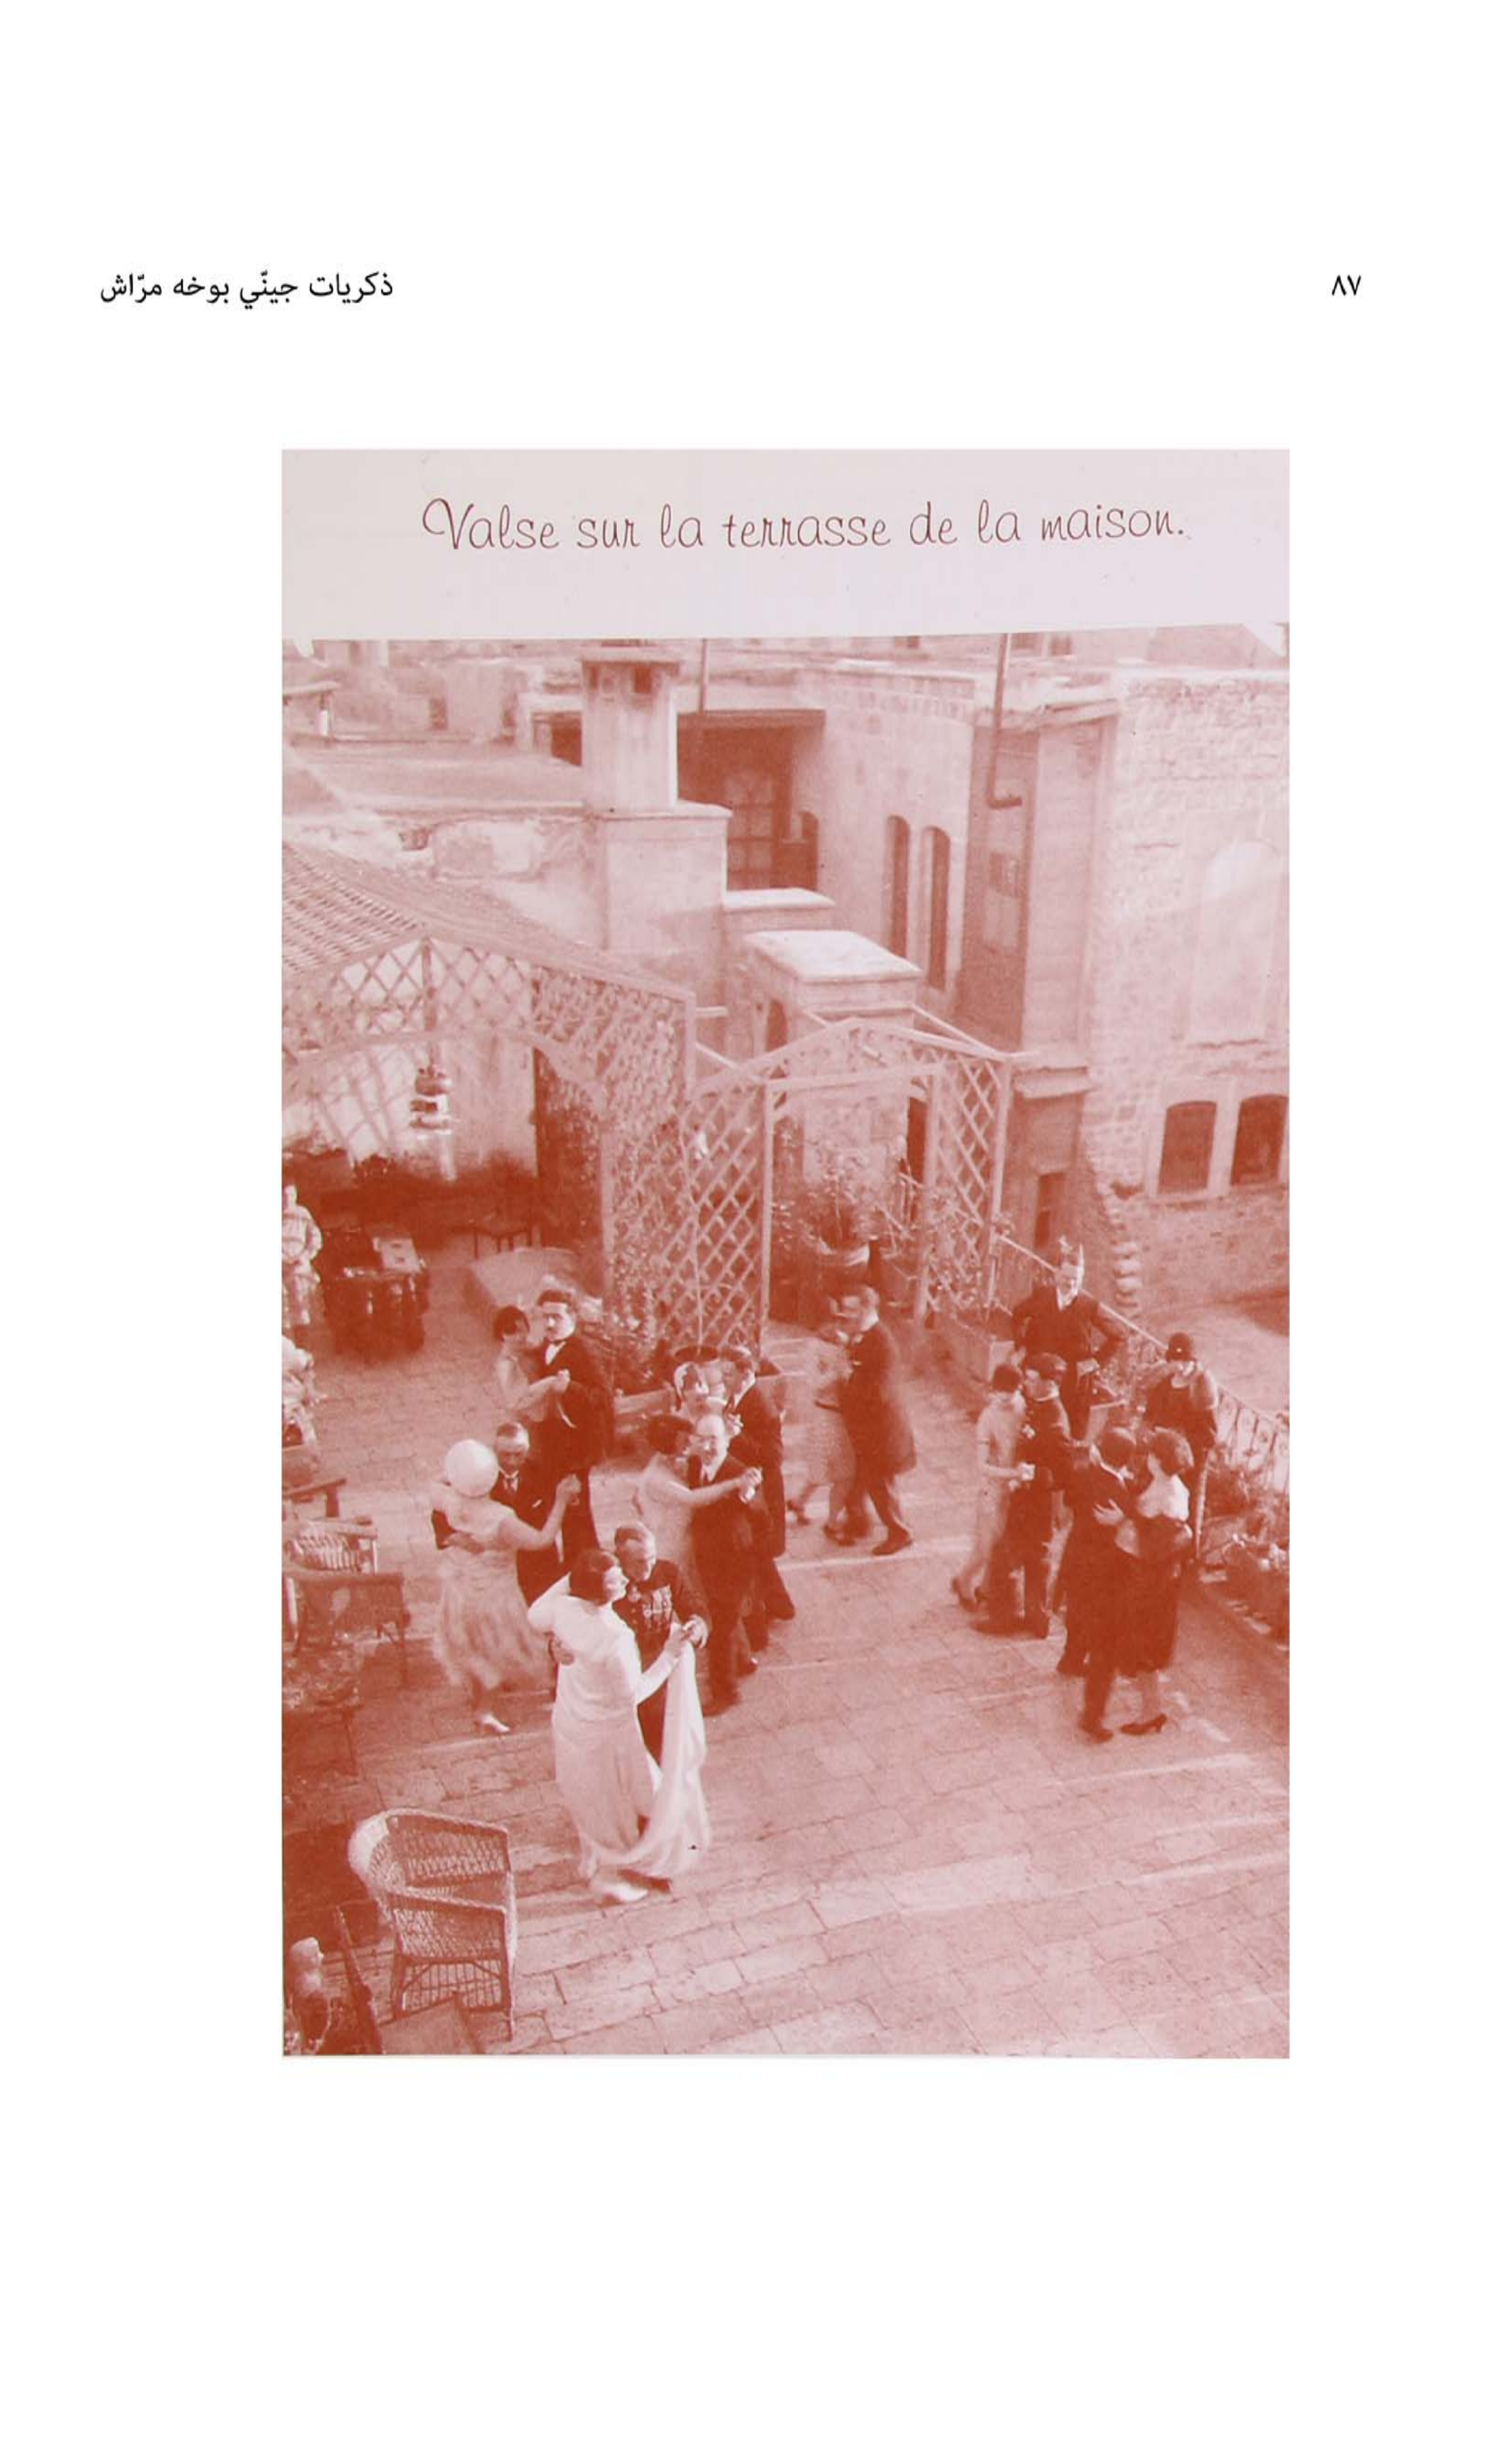 ذكريات جينّي بوخه مرّاش
٨٧
Valse sur la terrasse de la maison.